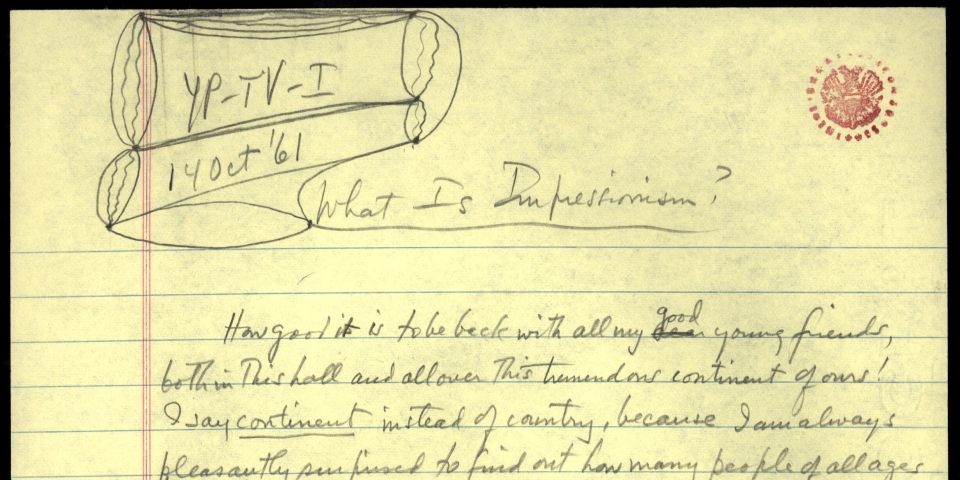 YP-TV-I
14 Oct '61
What Is Impressionism?
How good it is to be back with all my dear good young friends,
both in this hall and all over this tremendous continent of ours!
I say continent instead of country, because I am always
pleasantly surprised to find out how many people of all ages